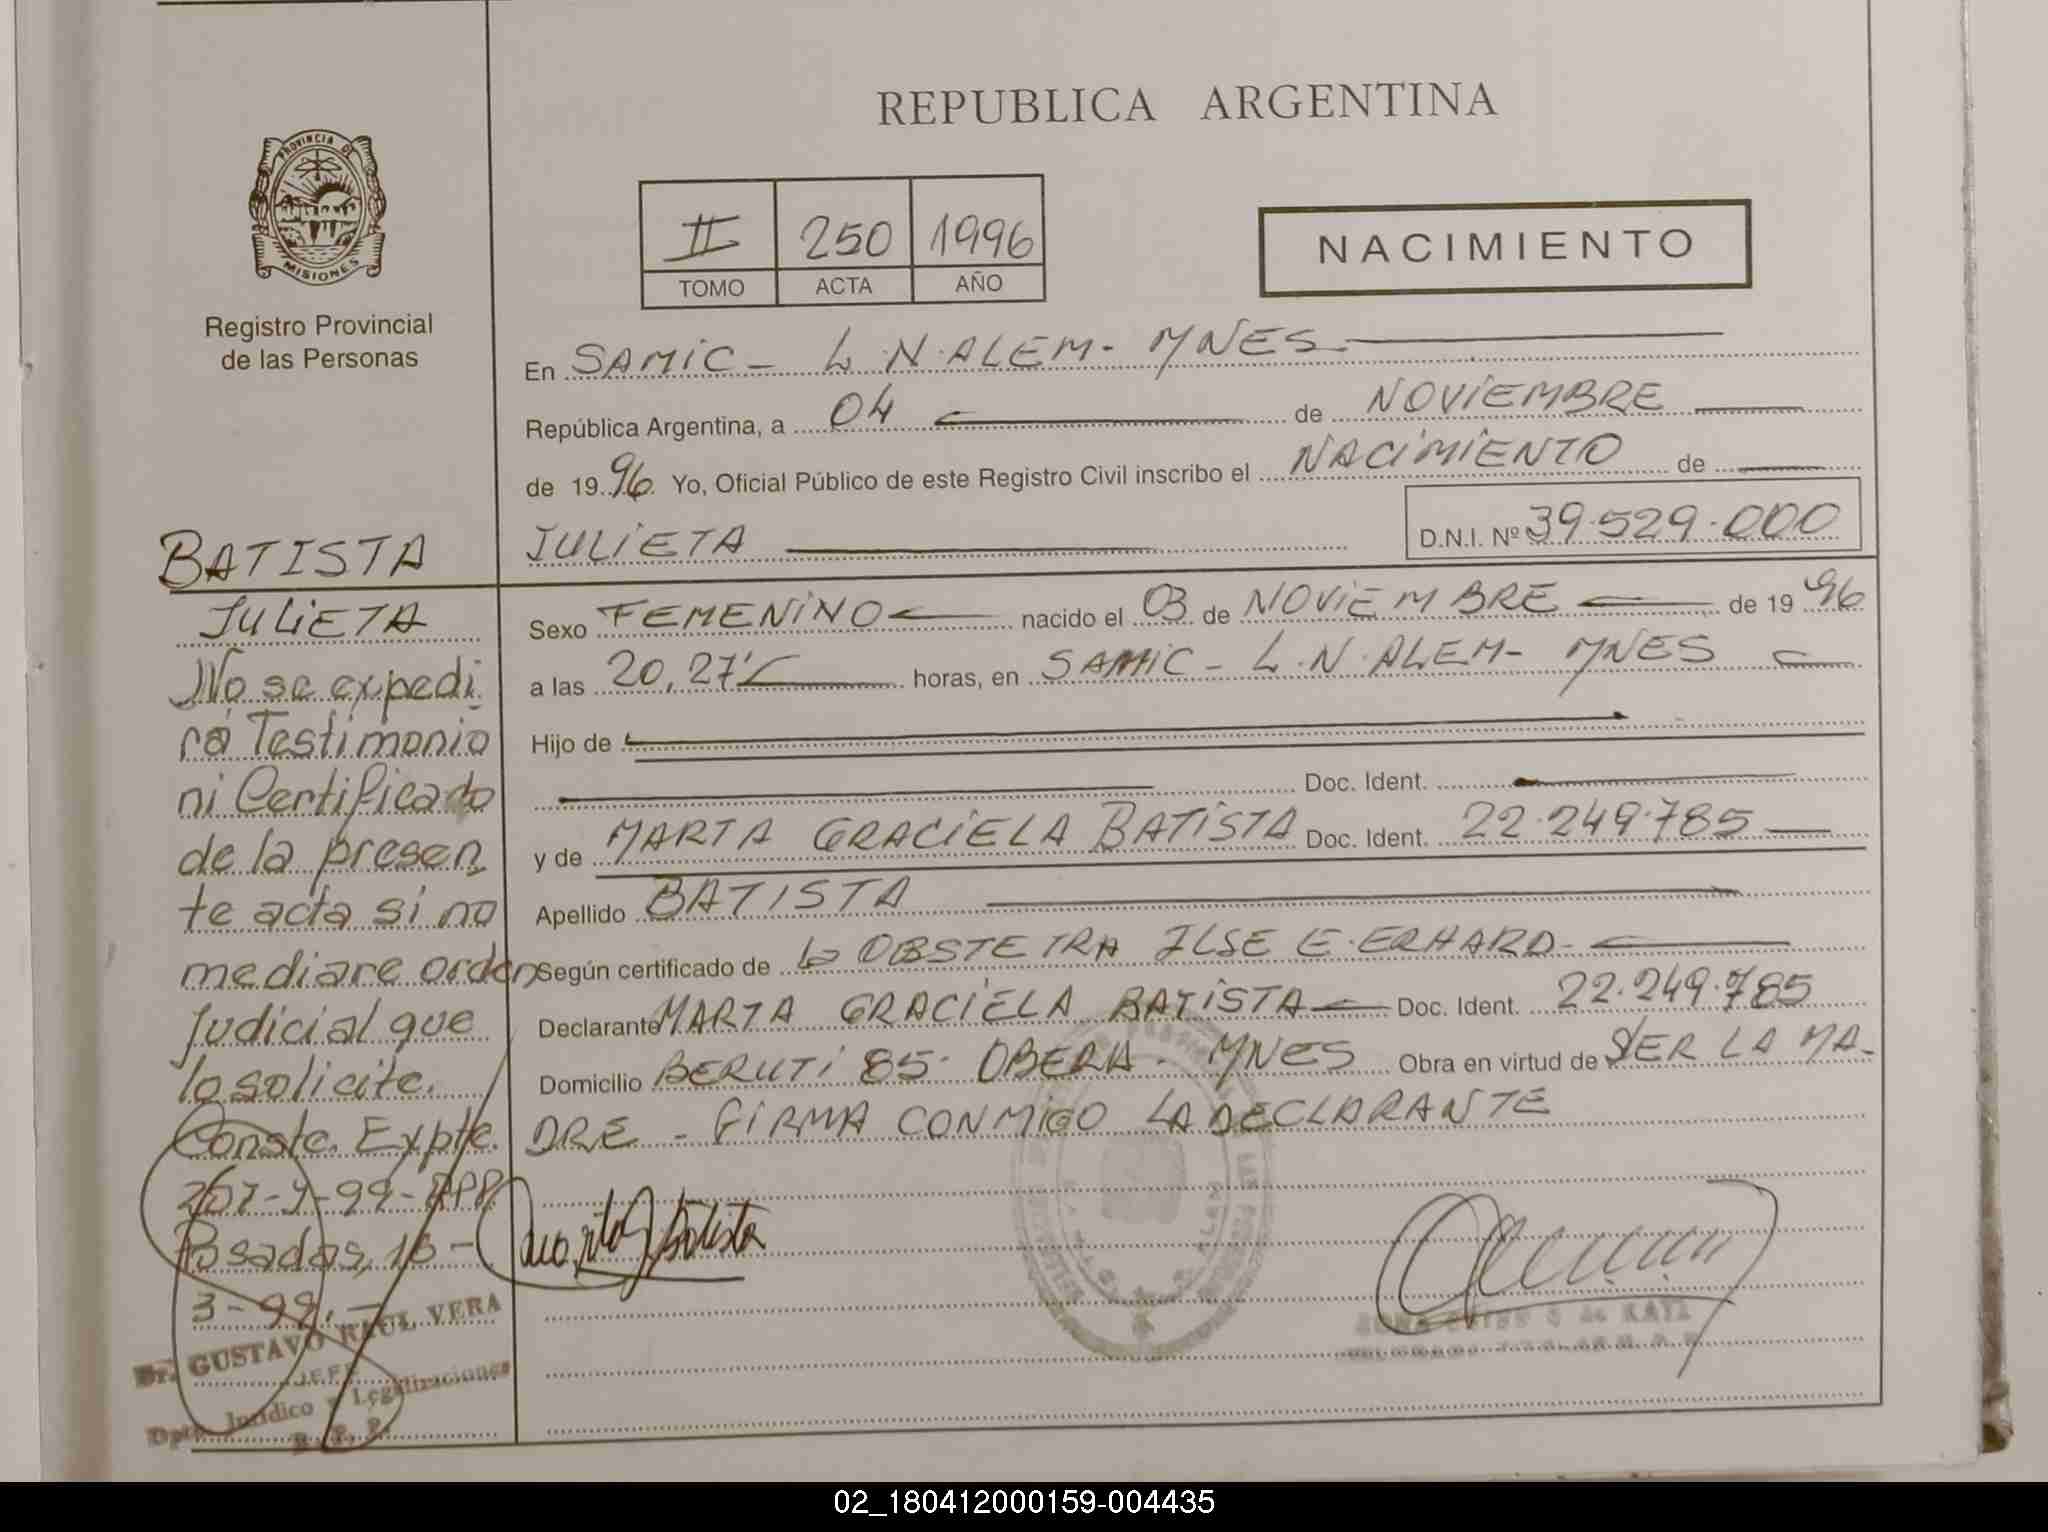 REPUBLICA ARGENTINA
PROVINCIA DE
MISIONES
Registro Provincial
de las Personas
II 250 1996
TOMO ACTA AÑO
NACIMIENTO
En SAMIC - L.N.ALEM - MNES
República Argentina, a 04 de NOVIEMBRE
de 1996 Yo, Oficial Público de este Registro Civil inscribo el NACIMIENTO de
JULIETA D.N.I. Nº 39.529.000
Sexo FEMENINO nacido el 03 de NOVIEMBRE de 1996
a las 20,27' horas, en SAMIC - L.N.ALEM - MNES
Hijo de
Doc. Ident.
y de MARTA GRACIELA BATISTA Doc. Ident. 22.249.785
Apellido BATISTA
Según certificado de LA OBSTETRA ILSE E. ERHARD-
Declarante MARTA GRACIELA BATISTA Doc. Ident. 22.249.785
Domicilio BERUTI 85- OBERA - MNES Obra en virtud de SER LA MA-
DRE - FIRMA CONMIGO LA DECLARANTE
BATISTA
JULIETA
No se expedi
rá Testimonio
ni Certificado
de la presen
te acta si no
mediare orden
Judicial que
lo solicite.
Conste. Expte.
Posadas, 16-
3-99.-
Dr. GUSTAVO RAUL VERA
JEFE
Dpto. Jurídico y Legalizaciones
R. P. P.
02_180412000159-004435